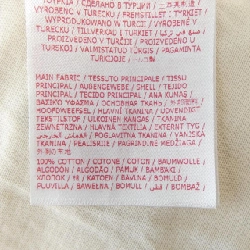 СДЕЛАНО В ТУРЦИИ /
VYROBENO V TURECKU / FREMSTILLET I TYRKIET /
WYPRODUKOWANO W TURCJI / VYROBENÉ V
TURECKU / TILLVERKAD I TURKIET /
PROIZVEDENO V TURČIJI / PROIZVEDENO U
TURSKOJ / VALMISTATUD TÜRGIS / PAGAMINTA
TURKIJOJE /
MAIN FABRIC / TESSUTO PRINCIPALE / TISSU
PRINCIPAL / AUGENGEWEBE / SHELL / TEJIDO
PRINCIPAL / TECIDO PRINCIPAL / ANA KUMAŞ /
ΒΑΣΙΚΟ ΥΦΑΣΜΑ / ОСНОВНАЯ ТКАНЬ /
HOOFDWEEFSEL / HLAVNÍ TKANINA / UDVENDIGT
TEKSTILSTOF / ULKOINEN KANGAS / TKANINA
ZEWNĘTRZNA / HLAVNÁ TEXTÍLIA / EXTERNT TYG /
POGLAVITNA TKANINA / VANJSKA
TKANINA / / PAGRINDINĖ MEDŽIAGA /
100% COTTON / COTONE / COTON / BAUMWOLLE /
ALGODÓN / ALGODÃO / PAMUK / ΒΑΜΒΑΚΙ /
ХЛОПОК / 棉 / KATOEN / BAVLNA / BOMULD /
PUUVILLA / BAWEŁNA / BOMULL / قطن / BOMBAŽ /